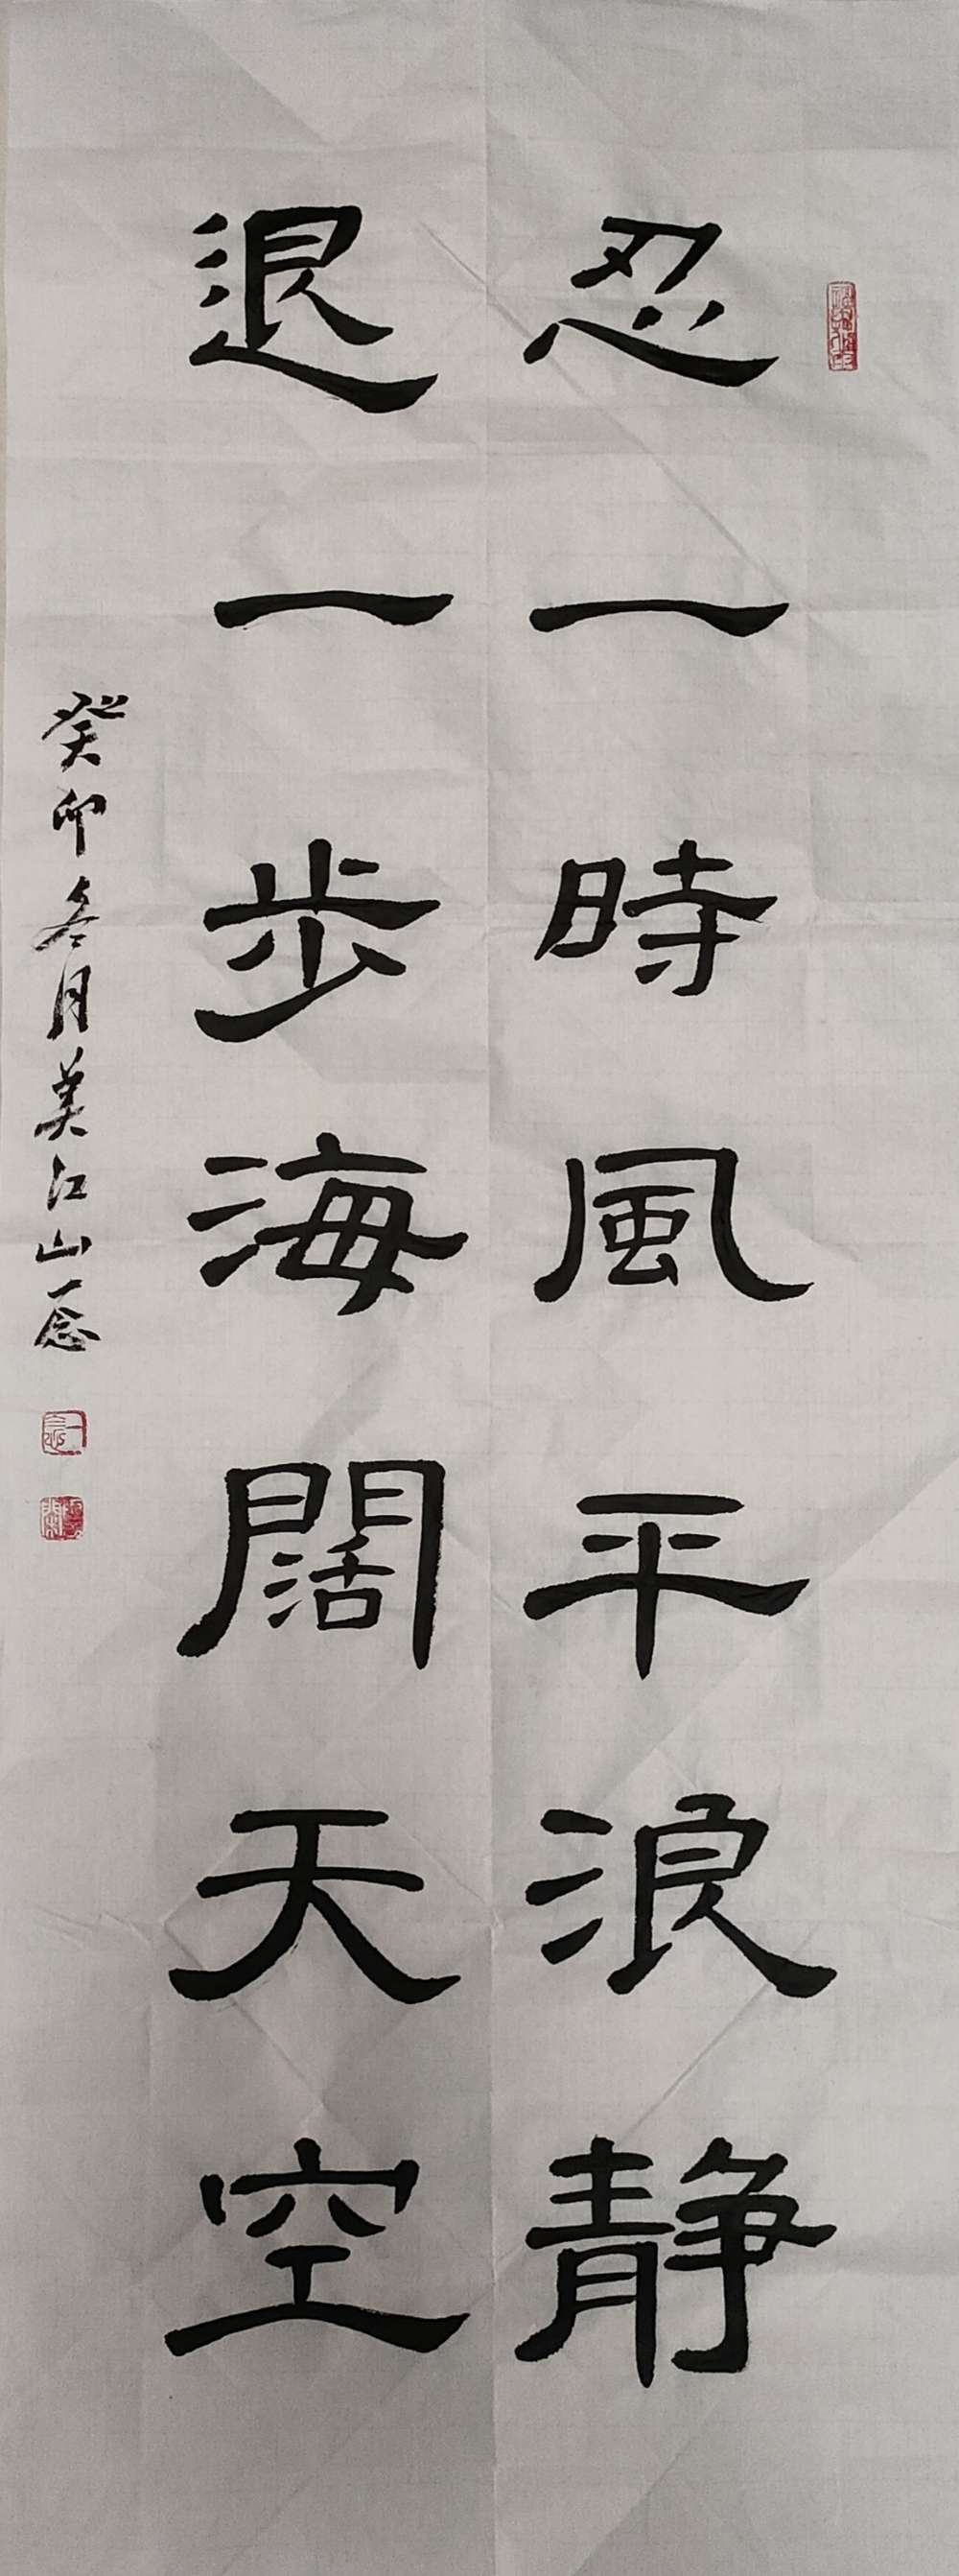 忍一時風平浪静
退一步海闊天空
癸卯冬月美江山一念